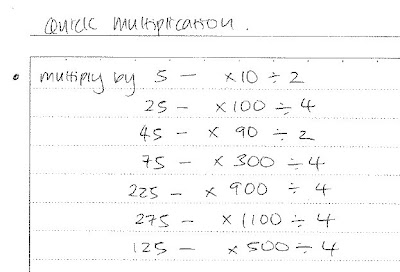 Quick Multiplication.
• multiply by 5 - ×10 ÷ 2
25 - ×100 ÷ 4
45 - × 90 ÷ 2
75 - × 300 ÷ 4
225 - × 900 ÷ 4
275 - × 1100 ÷ 4
125 - × 500 ÷ 4